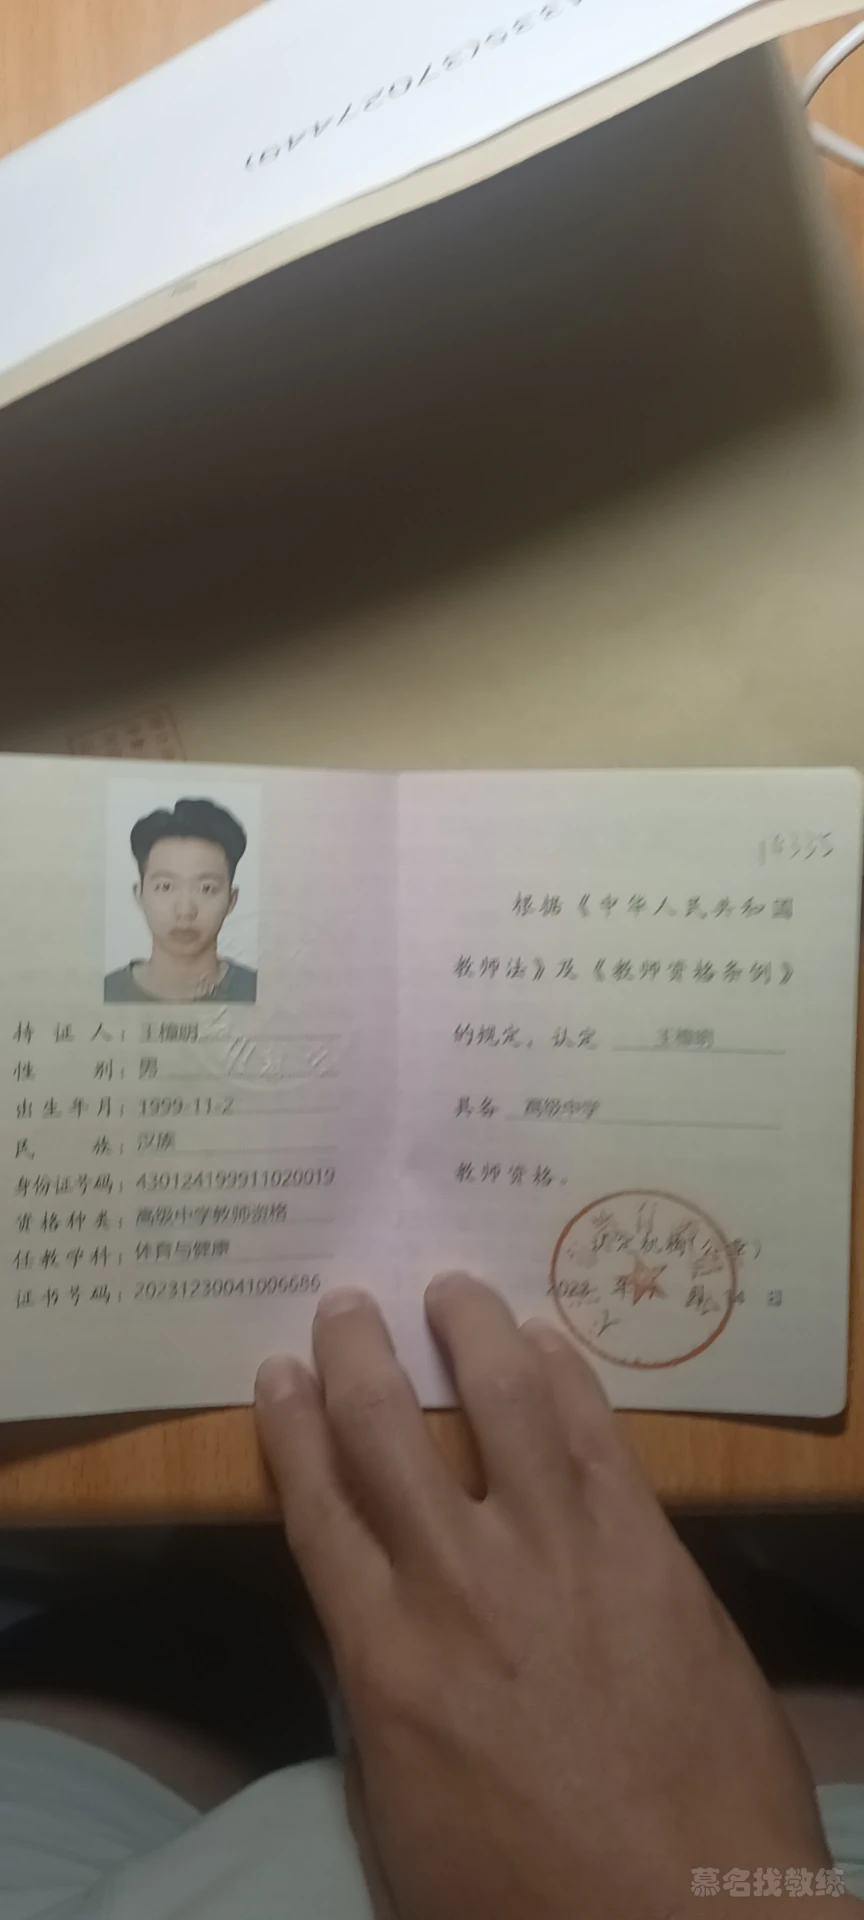 19335
持证人：王樟明
性别：男
出生年月：1999-11-2
民族：汉族
身份证号码：430124199911020019
资格种类：高级中学教师资格
任教学科：体育与健康
证书号码：20231230041006686
根据《中华人民共和国
教师法》及《教师资格条例》
的规定，认定 王樟明
具备 高级中学
教师资格。
认定机构（公章）
年 月 日
慕名找教练